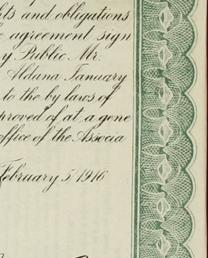 ts and obligations
agreement sign
y Public. Mr.
Aldana January
to the by laws of
proved of at a gene
office of the Associa
February 5 1916